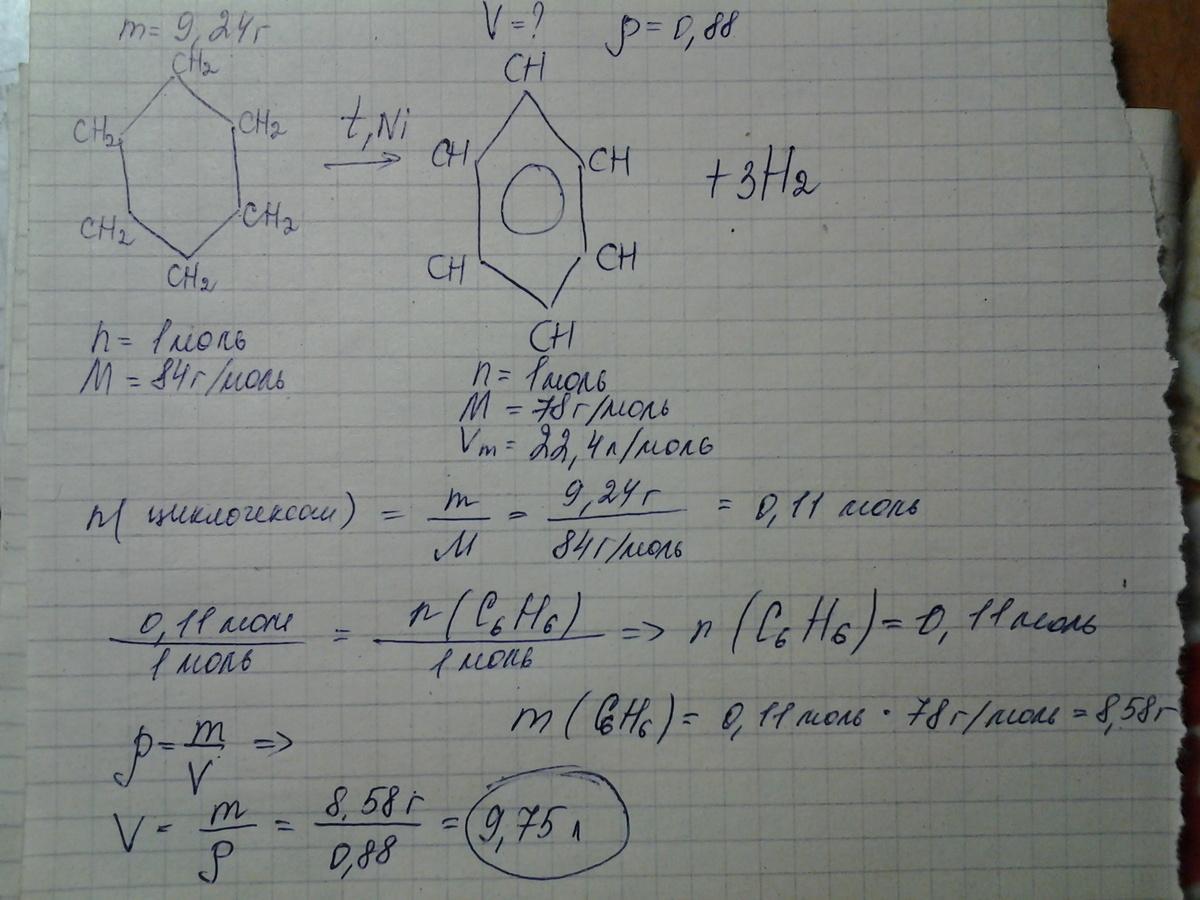 m = 9,24г V = ? ρ = 0,88
CH₂ CH
CH₂ CH₂ t, Ni CH CH + 3H₂
CH₂ CH₂ CH CH
CH₂ CH
n = 1моль
M = 84г/моль
n = 1моль
M = 78г/моль
Vm = 22,4л/моль
n( циклогексан) = m/M = 9,24г/84г/моль = 0,11 моль
0,11 моль/1 моль = n(C₆H₆)/1 моль => n(C₆H₆) = 0,11моль
m(C₆H₆) = 0,11моль · 78г/моль = 8,58г
ρ = m/V =>
V = m/ρ = 8,58г/0,88 = 9,75 л